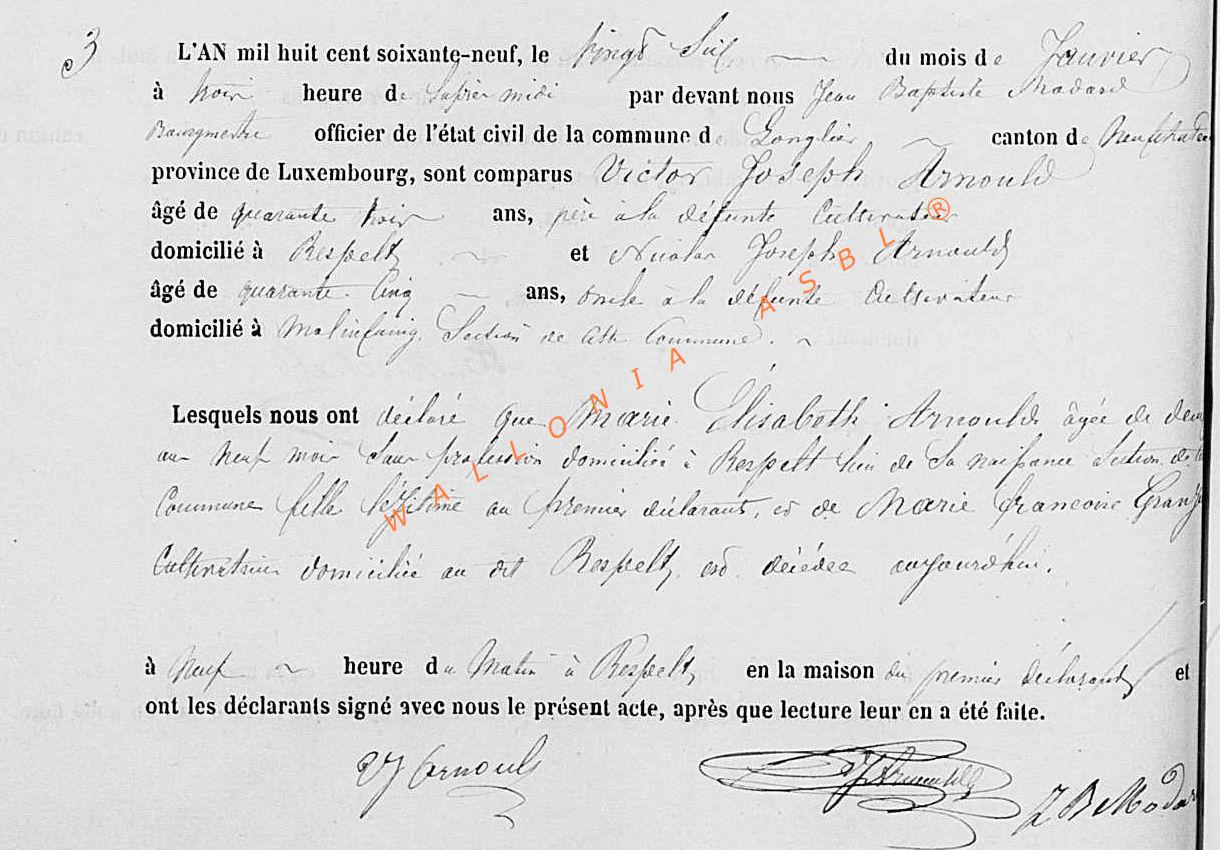 3
L'AN mil huit cent soixante-neuf, le vingt Six du mois de Janvier
à trois heure de l'apres midi par devant nous Jean Baptiste Modard
Bourgmestre officier de l'état civil de la commune d Longlier canton de Neufchateau
province de Luxembourg, sont comparus Victor Joseph Arnould
âgé de quarante trois ans, père à la défunte Cultivateur
domicilié à Respelt et Nicolas Joseph Arnould
âgé de quarante Cinq ans, oncle à la défunte Cultivateur
domicilié à Molinfaing Section de cette Commune.
Lesquels nous ont déclaré que Marie Elisabeth Arnould âgée de deux
ans neuf mois sans profession domiciliée à Respelt lieu de sa naissance section de
Commune fille légitime au premier déclarant, et de Marie francoise
Cultivatrice domiciliée au dit Respelt, est décédée aujourd'hui.
à neuf heure du Matin à Respelt, en la maison du premier déclarant et
ont les déclarants signé avec nous le présent acte, après que lecture leur en a été faite.
VJ Arnould
NJ Arnould
J B Modar
WALLONIA ASBL ®